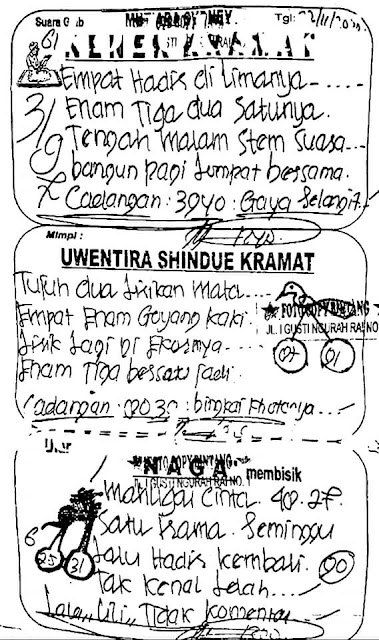 Suara G b MUTIARA SYDNEY Tgl: 02/11/20
KEKER KRAMAT
Empat Hadis di limanya-.....
Enam Tiga dua satunya.
3/9
Tengah malam stem suasa...
bangun pagi Jumpat bersama.
Cadangan: 3940: Gaya Selangit..
Mimpi :
UWENTIRA SHINDUE KRAMAT
Tujuh dua Lirikan Mata....
Empat Enam Goyang kaki
FOTO COPY BINTANG
JL. I GUSTI NGURAH RAI NO
Lirik lagi di Ekornya....
07 01
Enam Tiga bersatu jadi.
Cadangan: 0030: bingkai Khatanya...
FOTO COPY BINTANG
NAGA membisik
JL. I GUSTI NGURAH RAI NO.
Mahligai Cinta. 40. 27.
Satu Irama. Seminggu
6
25 31
lalu Hadis kembali.
00
Tak kenal lelah....
Lala,, Lili,, Tidak komentar